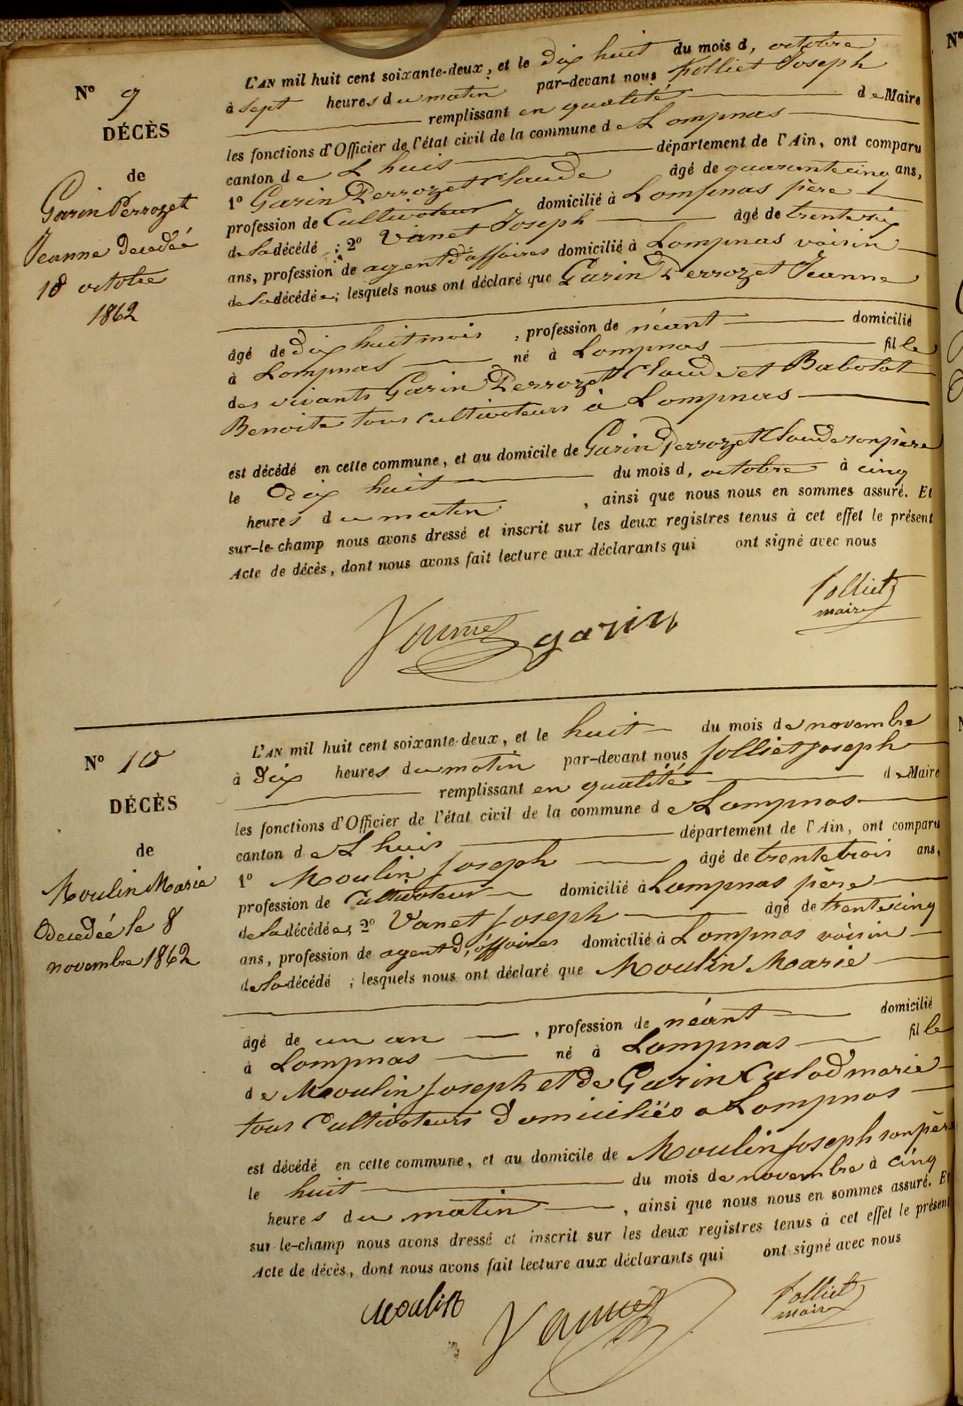 N° 9
DÉCÈS
de
Garin Perrozet
Jeanne decedée
18 octobre
1862
L'AN mil huit cent soixante-deux, et le dix huit du mois d, octobre
à sept heures du matin par-devant nous Jolliet Joseph
remplissant en qualité de Maire
les fonctions d'Officier de l'état civil de la commune de Lompnas
canton de Lhuis département de l'Ain, ont comparu
1° Garin Perrozet Claude âgé de quarante cinq ans,
profession de Cultivateur domicilié à Lompnas père
de la décédé ; 2° Vanet Joseph âgé de trente six
ans, profession de agent d'affaires domicilié à Lompnas voisin
de la décédée ; lesquels nous ont déclaré que Garin Perrozet Jeanne
âgé de dix huit mois , profession de néant domicilié
à Lompnas né à Lompnas fille
des vivants Garin Perrozet Claude et Babolat
Benoite tous cultivateurs à Lompnas
est décédé en cette commune, et au domicile de Garin Perrozet Claude son père
le dix huit du mois d, octobre à cinq
heures du matin , ainsi que nous nous en sommes assuré. Et
sur-le-champ nous avons dressé et inscrit sur les deux registres tenus à cet effet le présent
Acte de décès, dont nous avons fait lecture aux déclarants qui ont signé avec nous
Jolliet
maire
garin
N° 10
DÉCÈS
de
Moulin Marie
Decedée le 8
novembre 1862
L'AN mil huit cent soixante-deux, et le huit du mois de novembre
à dix heures du matin par-devant nous Jolliet Joseph
remplissant en qualité de Maire
les fonctions d'Officier de l'état civil de la commune de Lompnas
canton de Lhuis département de l'Ain, ont comparu
1° Moulin Joseph âgé de trente trois ans,
profession de Cultivateur domicilié à Lompnas père
de la décédée, 2° Vanet Joseph âgé de trente cinq
ans, profession de agent d'affaires domicilié à Lompnas voisin
de la décédé ; lesquels nous ont déclaré que Moulin Marie
âgé de un an , profession de néant domicilié
à Lompnas né à Lompnas fille
de Moulin Joseph et de Garin Calod marie
tous Cultivateurs domiciliés a Lompnas
est décédé en cette commune, et au domicile de Moulin Joseph son père
le huit du mois de novembre à cinq
heures du matin , ainsi que nous nous en sommes assuré. Et
sur-le-champ nous avons dressé et inscrit sur les deux registres tenus à cet effet le présent
Acte de décès, dont nous avons fait lecture aux déclarants qui ont signé avec nous
Jolliet
maire
moulin